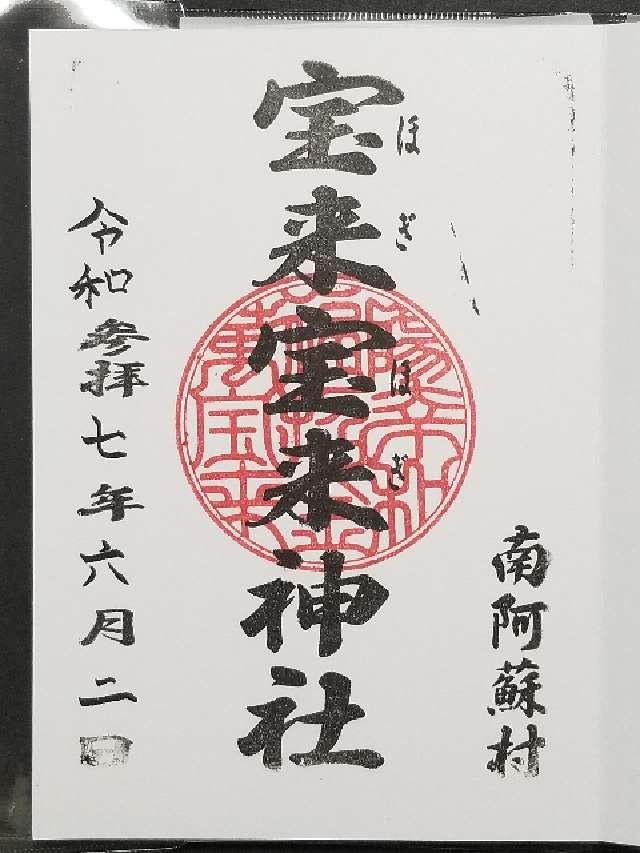 南阿蘇村
宝来宝来神社
ほぎほぎ
令和参拝七年六月二日